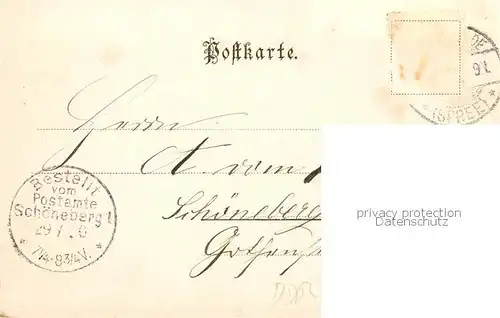 Postkarte.
DE
91.
* (SPREE) *
Herrn
A. vom
Schöneberg
Bestellt
vom
Postamte
Schöneberg 1
29 1. 0
* 7¼-8¾V. *
privacy protection
Datenschutz